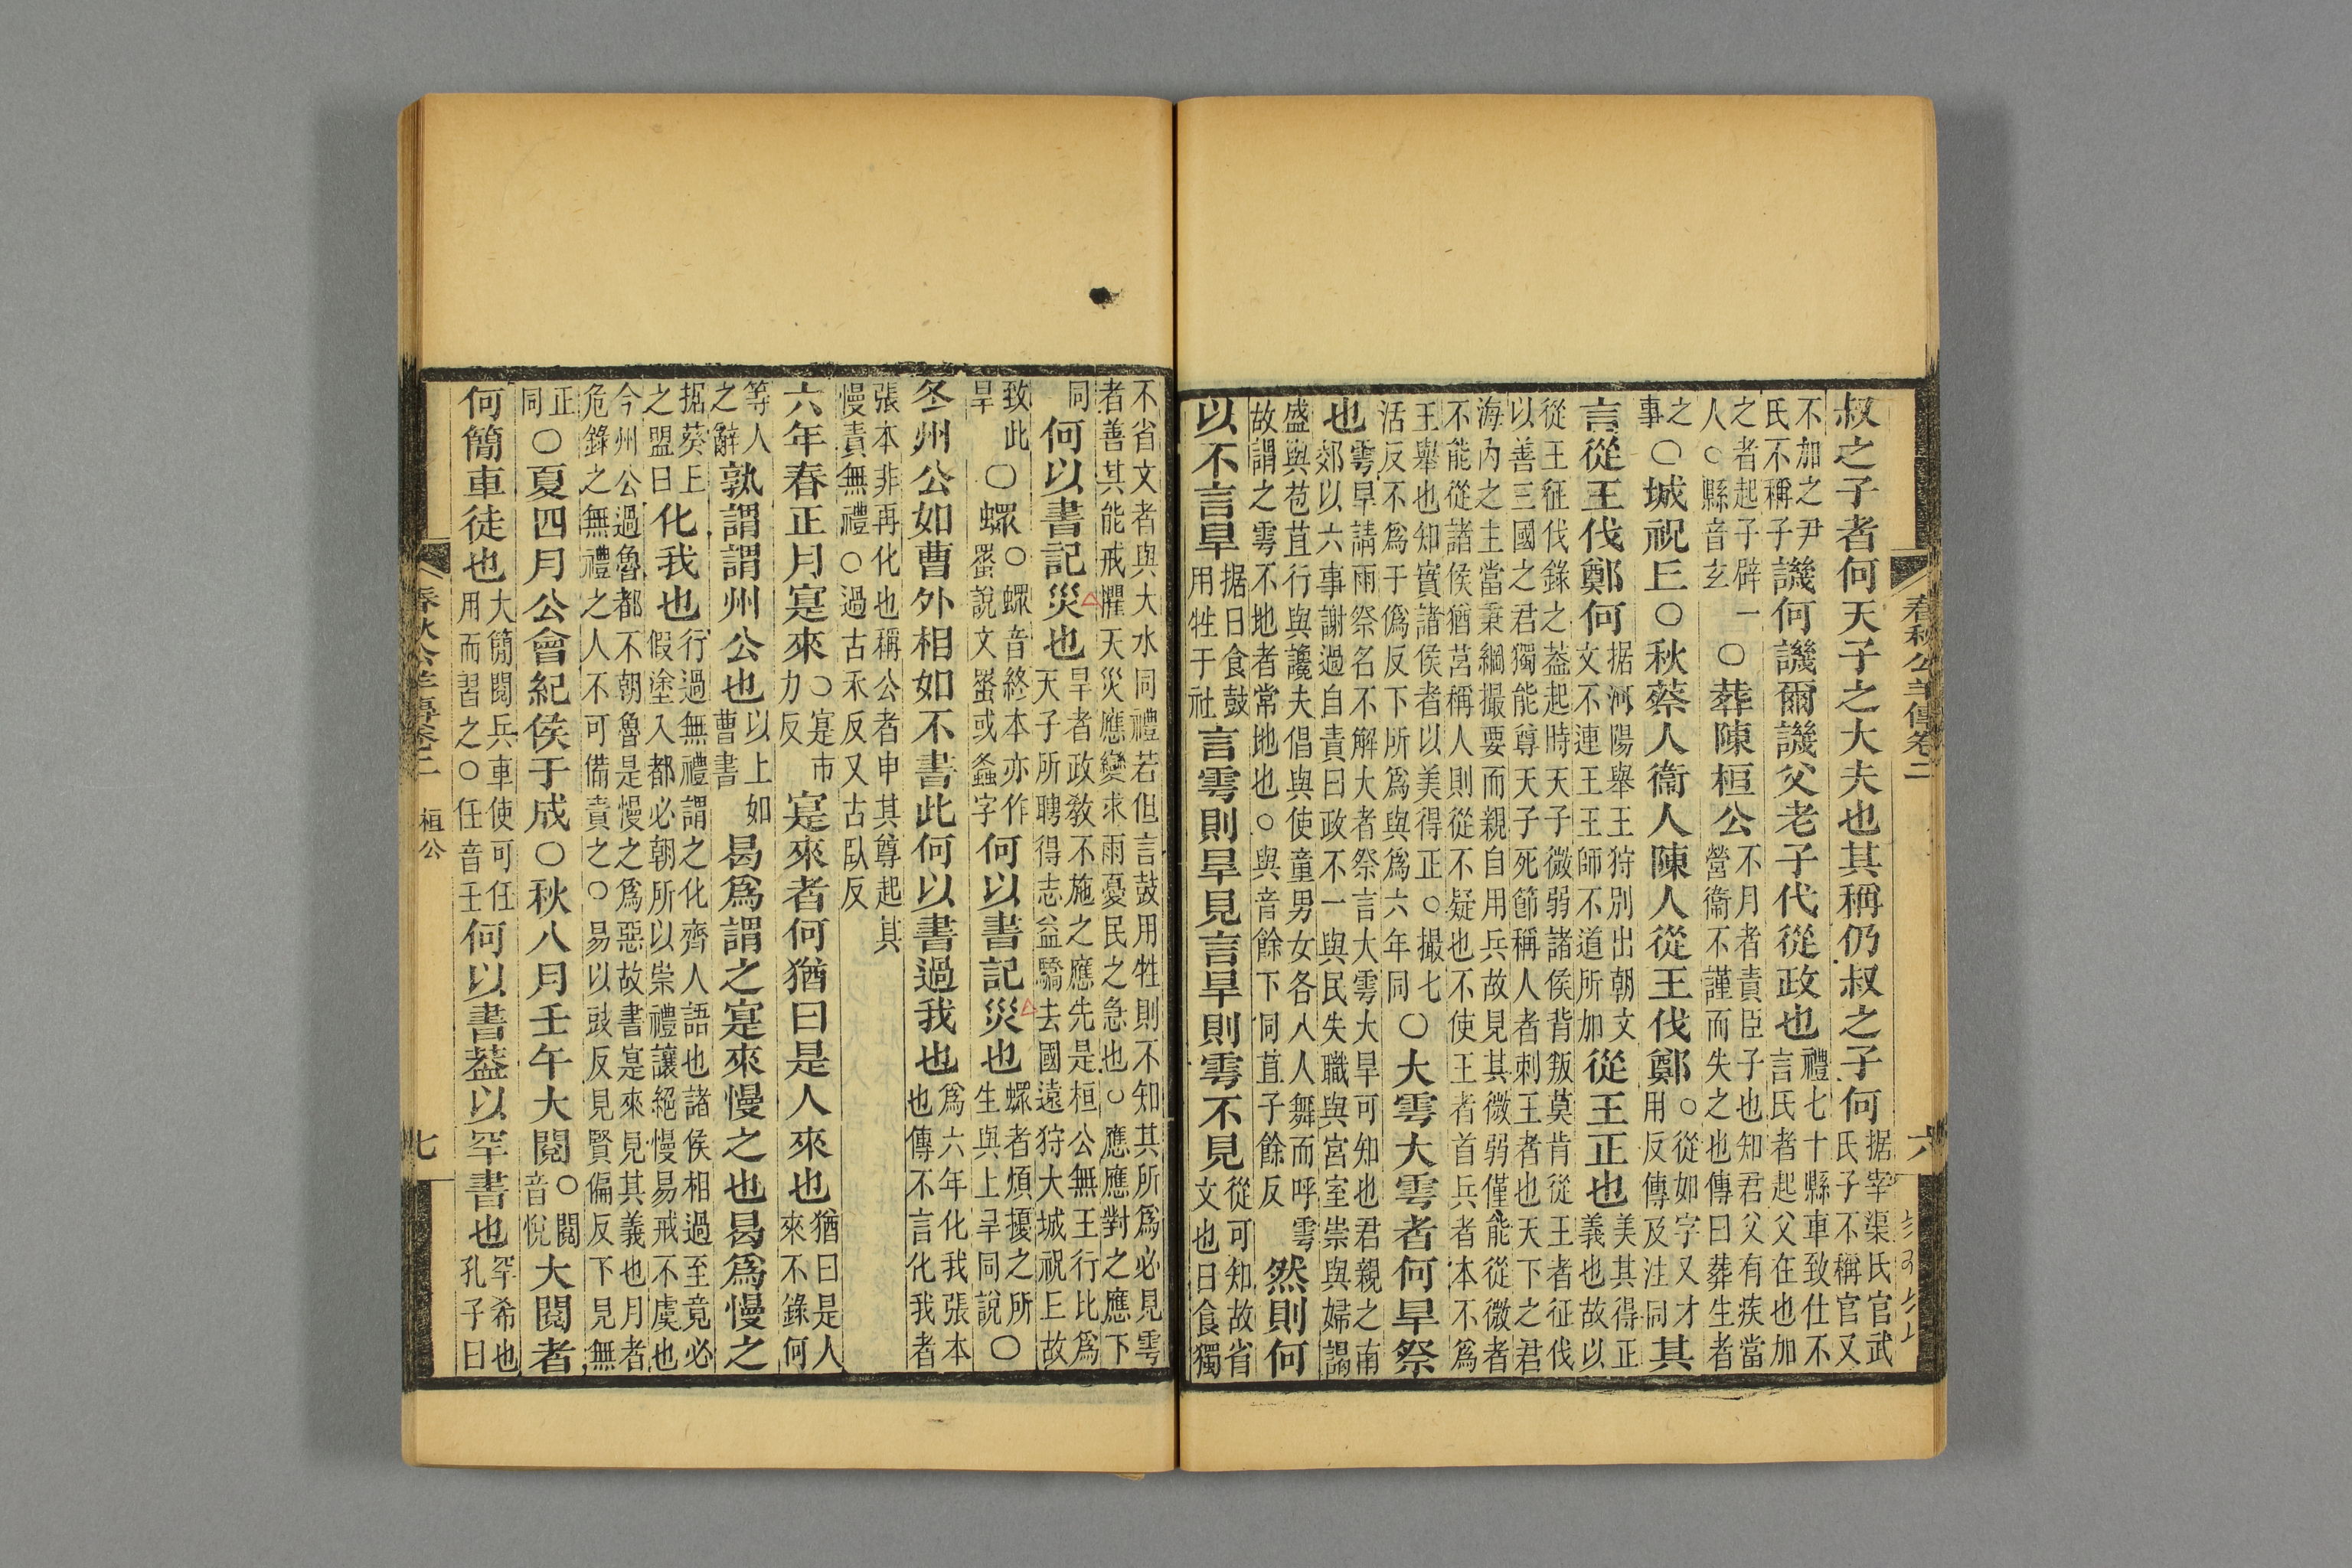 春秋公羊傳卷二
六
叔之子者何天子之大夫也其稱仍叔之子何据宰渠氏官武氏子不稱官又
不加之尹氏不稱子譏何譏爾譏父老子代從政也禮七十縣車致仕不言氏者起父在也加
之者起子辟一人○縣音玄○葬陳桓公不月者責臣子也知君父有疾當營衞不謹而失之也傳曰葬生者
之事○城祝丘○秋蔡人衞人陳人從王伐鄭○從如字又才用反傳及注同其
言從王伐鄭何据河陽舉王狩別出朝文文不連王王師不道所加從王正也美其得正義也故以
從王征伐錄之蓋起時天子微弱諸侯背叛莫肯從王者征伐以善三國之君獨能尊天子死節稱人者刺王者也天下之君
海內之主當秉綱撮要而親自用兵故見其微弱僅能從微者不能從諸侯猶莒稱人則從不疑也不使王者首兵者本不爲
王舉也知實諸侯者以美得正○撮七活反不爲于僞反下所爲與爲六年同○大雩大雩者何旱祭
也雩旱請雨祭名不解大者祭言大雩大旱可知也君親之南郊以六事謝過自責曰政不一與民失職與宮室崇與婦謁
盛與苞苴行與讒夫倡與使童男女各八人舞而呼雩故謂之雩不地者常地也○與音餘下同苴子餘反然則何
以不言旱据日食鼓用牲于社言雩則旱見言旱則雩不見從可知故省文也日食獨
不省文者與大水同禮若但言鼓用牲則不知其所爲必見雩者善其能戒懼天災應變求雨憂民之急也○應應對之應下
同何以書記災也旱者政教不施之應先是桓公無王行比爲天子所聘得志益驕去國遠狩大城祝丘故
致此旱○螺○螺音終本亦作蜚說文蜚或螽字何以書記災也螺者煩擾之所生與上旱同說○
冬州公如曹外相如不書此何以書過我也爲六年化我張本也傳不言化我者
張本非再化也稱公者申其尊起其慢責無禮○過古禾反又古臥反
六年春正月寔來○寔市力反寔來者何猶曰是人來也猶曰是人來不錄何
等人之辭孰謂謂州公也以上如曹書曷爲謂之寔來慢之也曷爲慢之
据葵上之盟日化我也行過無禮謂之化齊人語也諸侯相過至竟必假塗入都必朝所以崇禮讓絕慢易戒不虞也
今州公過魯都不朝魯是慢之爲惡故書寔來見其義也月者危錄之無禮之人不可備責之○易以豉反見賢偏反下見無
正同○夏四月公會紀侯于成○秋八月壬午大閱○閱音悅大閱者
何簡車徒也大簡閱兵車使可任用而習之○任音壬何以書蓋以罕書也罕希也孔子曰
春秋公羊傳卷二
桓公
七